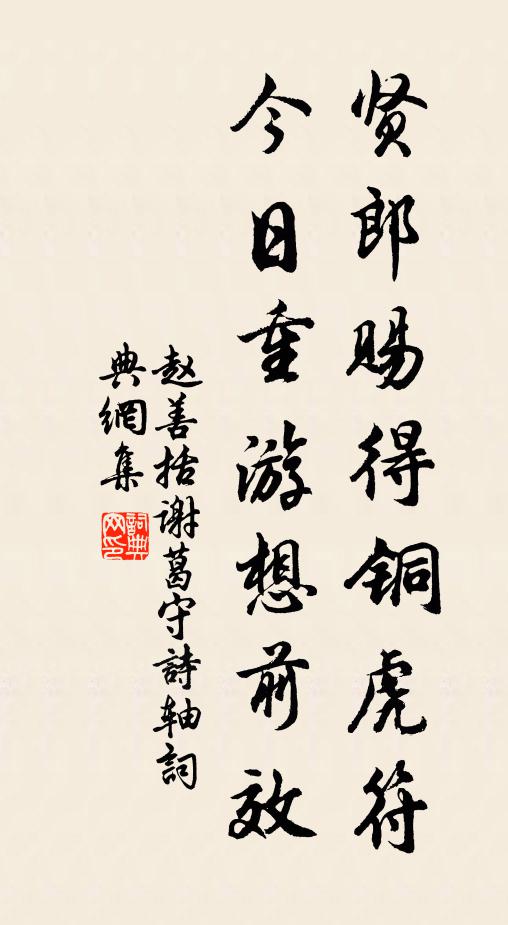 贤郎赐得铜虎符
今日重游想前效
赵善括谢葛守詩轴詞
典網集
詞典网印